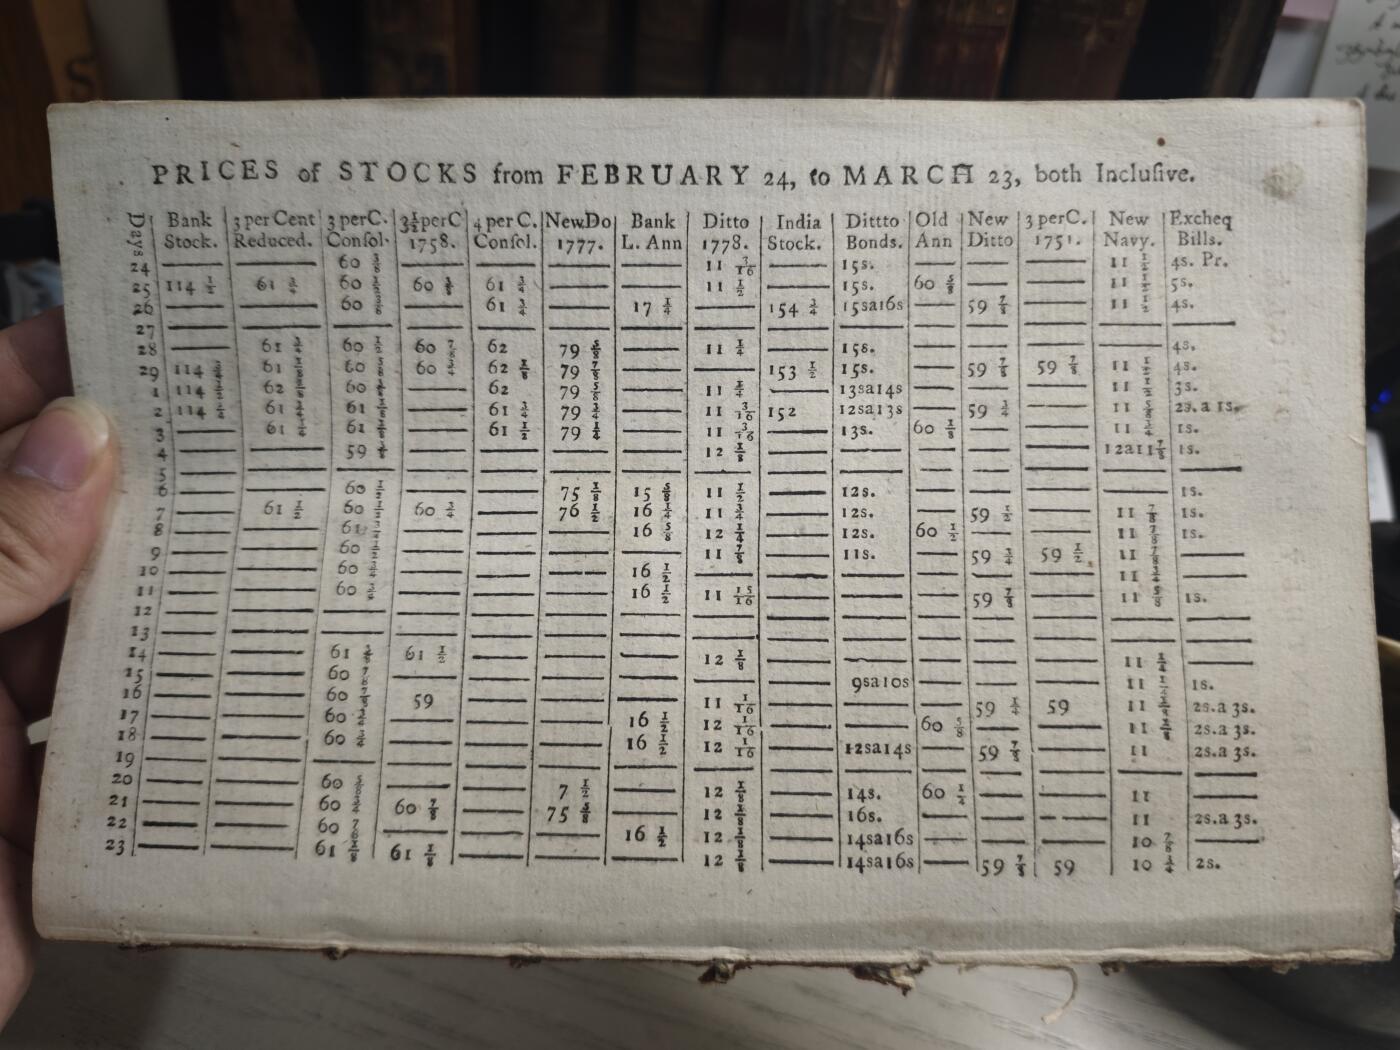 PRICES of STOCKS from FEBRUARY 24, to MARCH 23, both Incluſive.
Days | Bank Stock. | 3 per Cent Reduced. | 3 perC. Conſol. | 3½ perC 1758. | 4 per C. Conſol. | NewDo 1777. | Bank L. Ann | Ditto 1778. | India Stock. | Dittto Bonds. | Old Ann | New Ditto | 3 perC. 1751. | New Navy. | Excheq Bills.
24 — — 60 — — — — 11 3/16 — 15s. — — — 11 ½ 4s. Pr.
25 114 ½ 61 ¾ 60 60 61 ¾ — — 11 ½ — 15s. 60 ⅝ — — 11 ½ 5s.
26 — — 60 — 61 ¾ — 17 ¼ — 154 ¾ 15sa16s — 59 ⅞ — 11 ½ 4s.
27 — — — — — — — — — — — — — — —
28 — 61 ¾ 60 ½ 60 ⅞ 62 79 ⅝ — 11 ¼ — 15s. — — — — 4s.
29 114 61 60 ⅝ 60 ¾ 62 ⅛ 79 ⅞ — — 153 ½ 15s. — 59 ⅞ 59 ⅞ 11 ½ 4s.
1 114 62 60 — 62 79 ⅝ — 11 ¼ — 13sa14s — — — 11 ½ 3s.
2 114 61 61 ⅛ — 61 ¾ 79 ¾ — 11 3/16 152 12sa13s — 59 ¾ — 11 ⅝ 2s. a 1s.
3 — 61 61 ⅛ — 61 ½ 79 ¼ — 11 3/16 — 13s. 60 ⅛ — — 11 ¾ 1s.
4 — — 59 — — — — 12 ⅛ — — — — — 12a11⅞ 1s.
5 — — — — — — — — — — — — — — —
6 — — 60 ½ — — 75 ⅛ 15 ⅝ 11 ½ — 12s. — — — — 1s.
7 — 61 ½ 60 ½ 60 ¾ — 76 ½ 16 ¼ 11 ¾ — 12s. — 59 ½ — 11 ⅞ 1s.
8 — — 61 — — — 16 ⅝ 12 ¼ — 12s. 60 ½ — — 11 ⅞ 1s.
9 — — 60 ½ — — — — 11 ⅞ — 11s. — 59 ¾ 59 ½ 11 ⅞ —
10 — — 60 ¾ — — — 16 ½ — — — — — — 11 ¾ —
11 — — 60 ¾ — — — 16 ½ 11 15/16 — — — 59 ⅞ — 11 ⅝ 1s.
12 — — — — — — — — — — — — — — —
13 — — — — — — — — — — — — — — —
14 — — 61 61 ½ — — — 12 ⅛ — — — — — 11 ¼ —
15 — — 60 ⅞ — — — — — — 9sa10s — — — 11 1s.
16 — — 60 ⅞ 59 — — — 11 1/16 — — — 59 ¼ 59 11 2s.a 3s.
17 — — 60 ¾ — — — 16 ½ 12 1/16 — — 60 ⅝ — — 11 ⅛ 2s.a 3s.
18 — — 60 ¾ — — — 16 ½ 12 1/16 — 12sa14s — 59 ⅞ — 11 2s.a 3s.
19 — — — — — — — — — — — — — — —
20 — — 60 ⅝ — — 7 ½ — 12 ⅛ — 14s. 60 ½ — — 11 —
21 — — 60 ¾ 60 ⅞ — 75 ⅝ — 12 ⅛ — 16s. — — — 11 2s.a 3s.
22 — — 60 ⅞ — — — 16 ½ 12 ⅛ — 14sa16s — — — 10 ⅞ —
23 — — 61 ⅛ 61 ⅛ — — — 12 ⅛ — 14sa16s — 59 ⅞ 59 10 ¾ 2s.